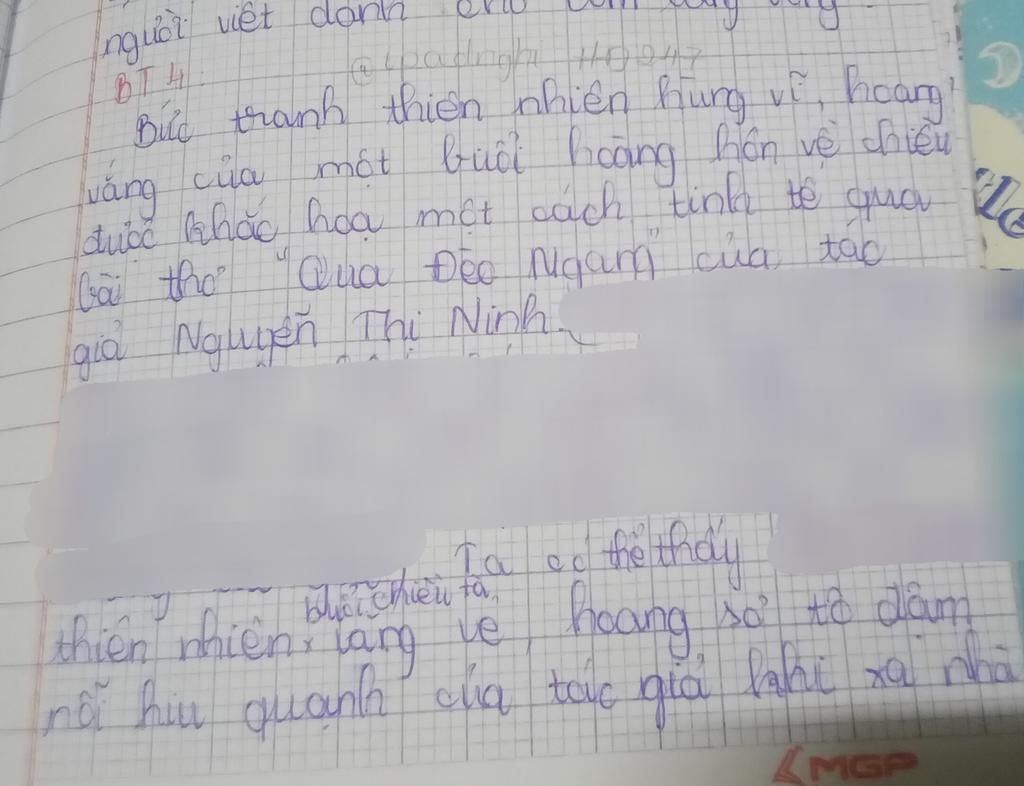 người việt dành cho
BT4.
Bức tranh thiên nhiên hùng vĩ, hoang
vắng của một buổi hoàng hôn về chiều
được khắc hoạ một cách tinh tế qua
bài thơ "Qua Đèo Ngam" của tác
giả Nguyễn Thị Ninh.
Ta có thể thấy
buổi chiều tà
thiên nhiên, vẻ, hoang sơ tô đậm
nỗi hiu quạnh của tác giả khi xa nhà
MGP